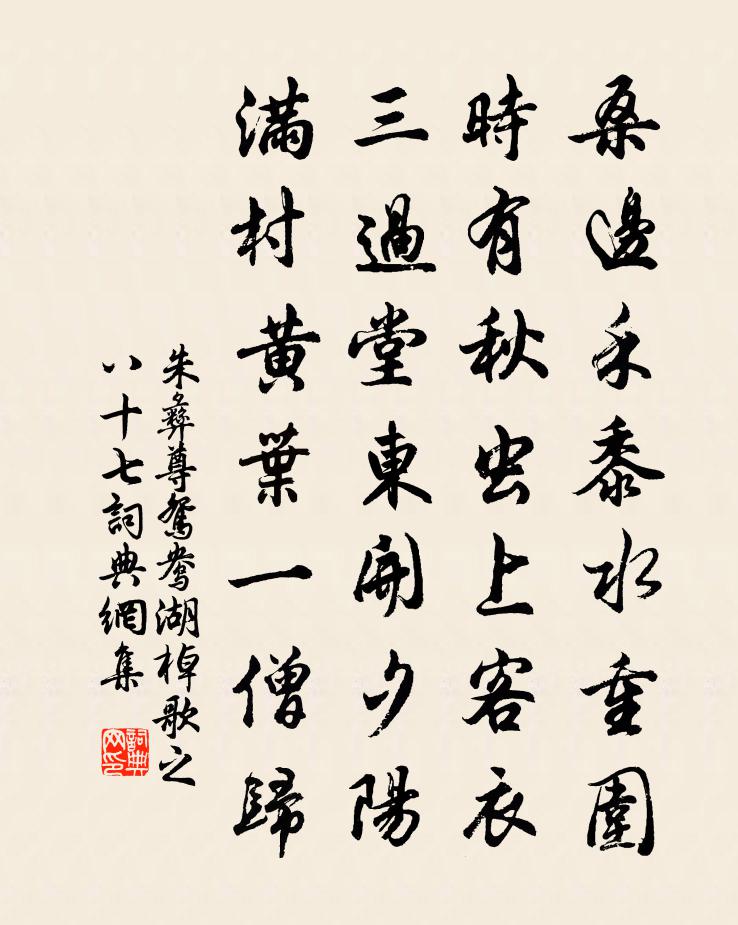 桑邊禾黍水重圍
時有秋虫上客衣
三過堂東開夕陽
滿村黃葉一僧歸
朱彝尊鴛鴦湖棹歌之
八十七詞典網集
詞典
网印